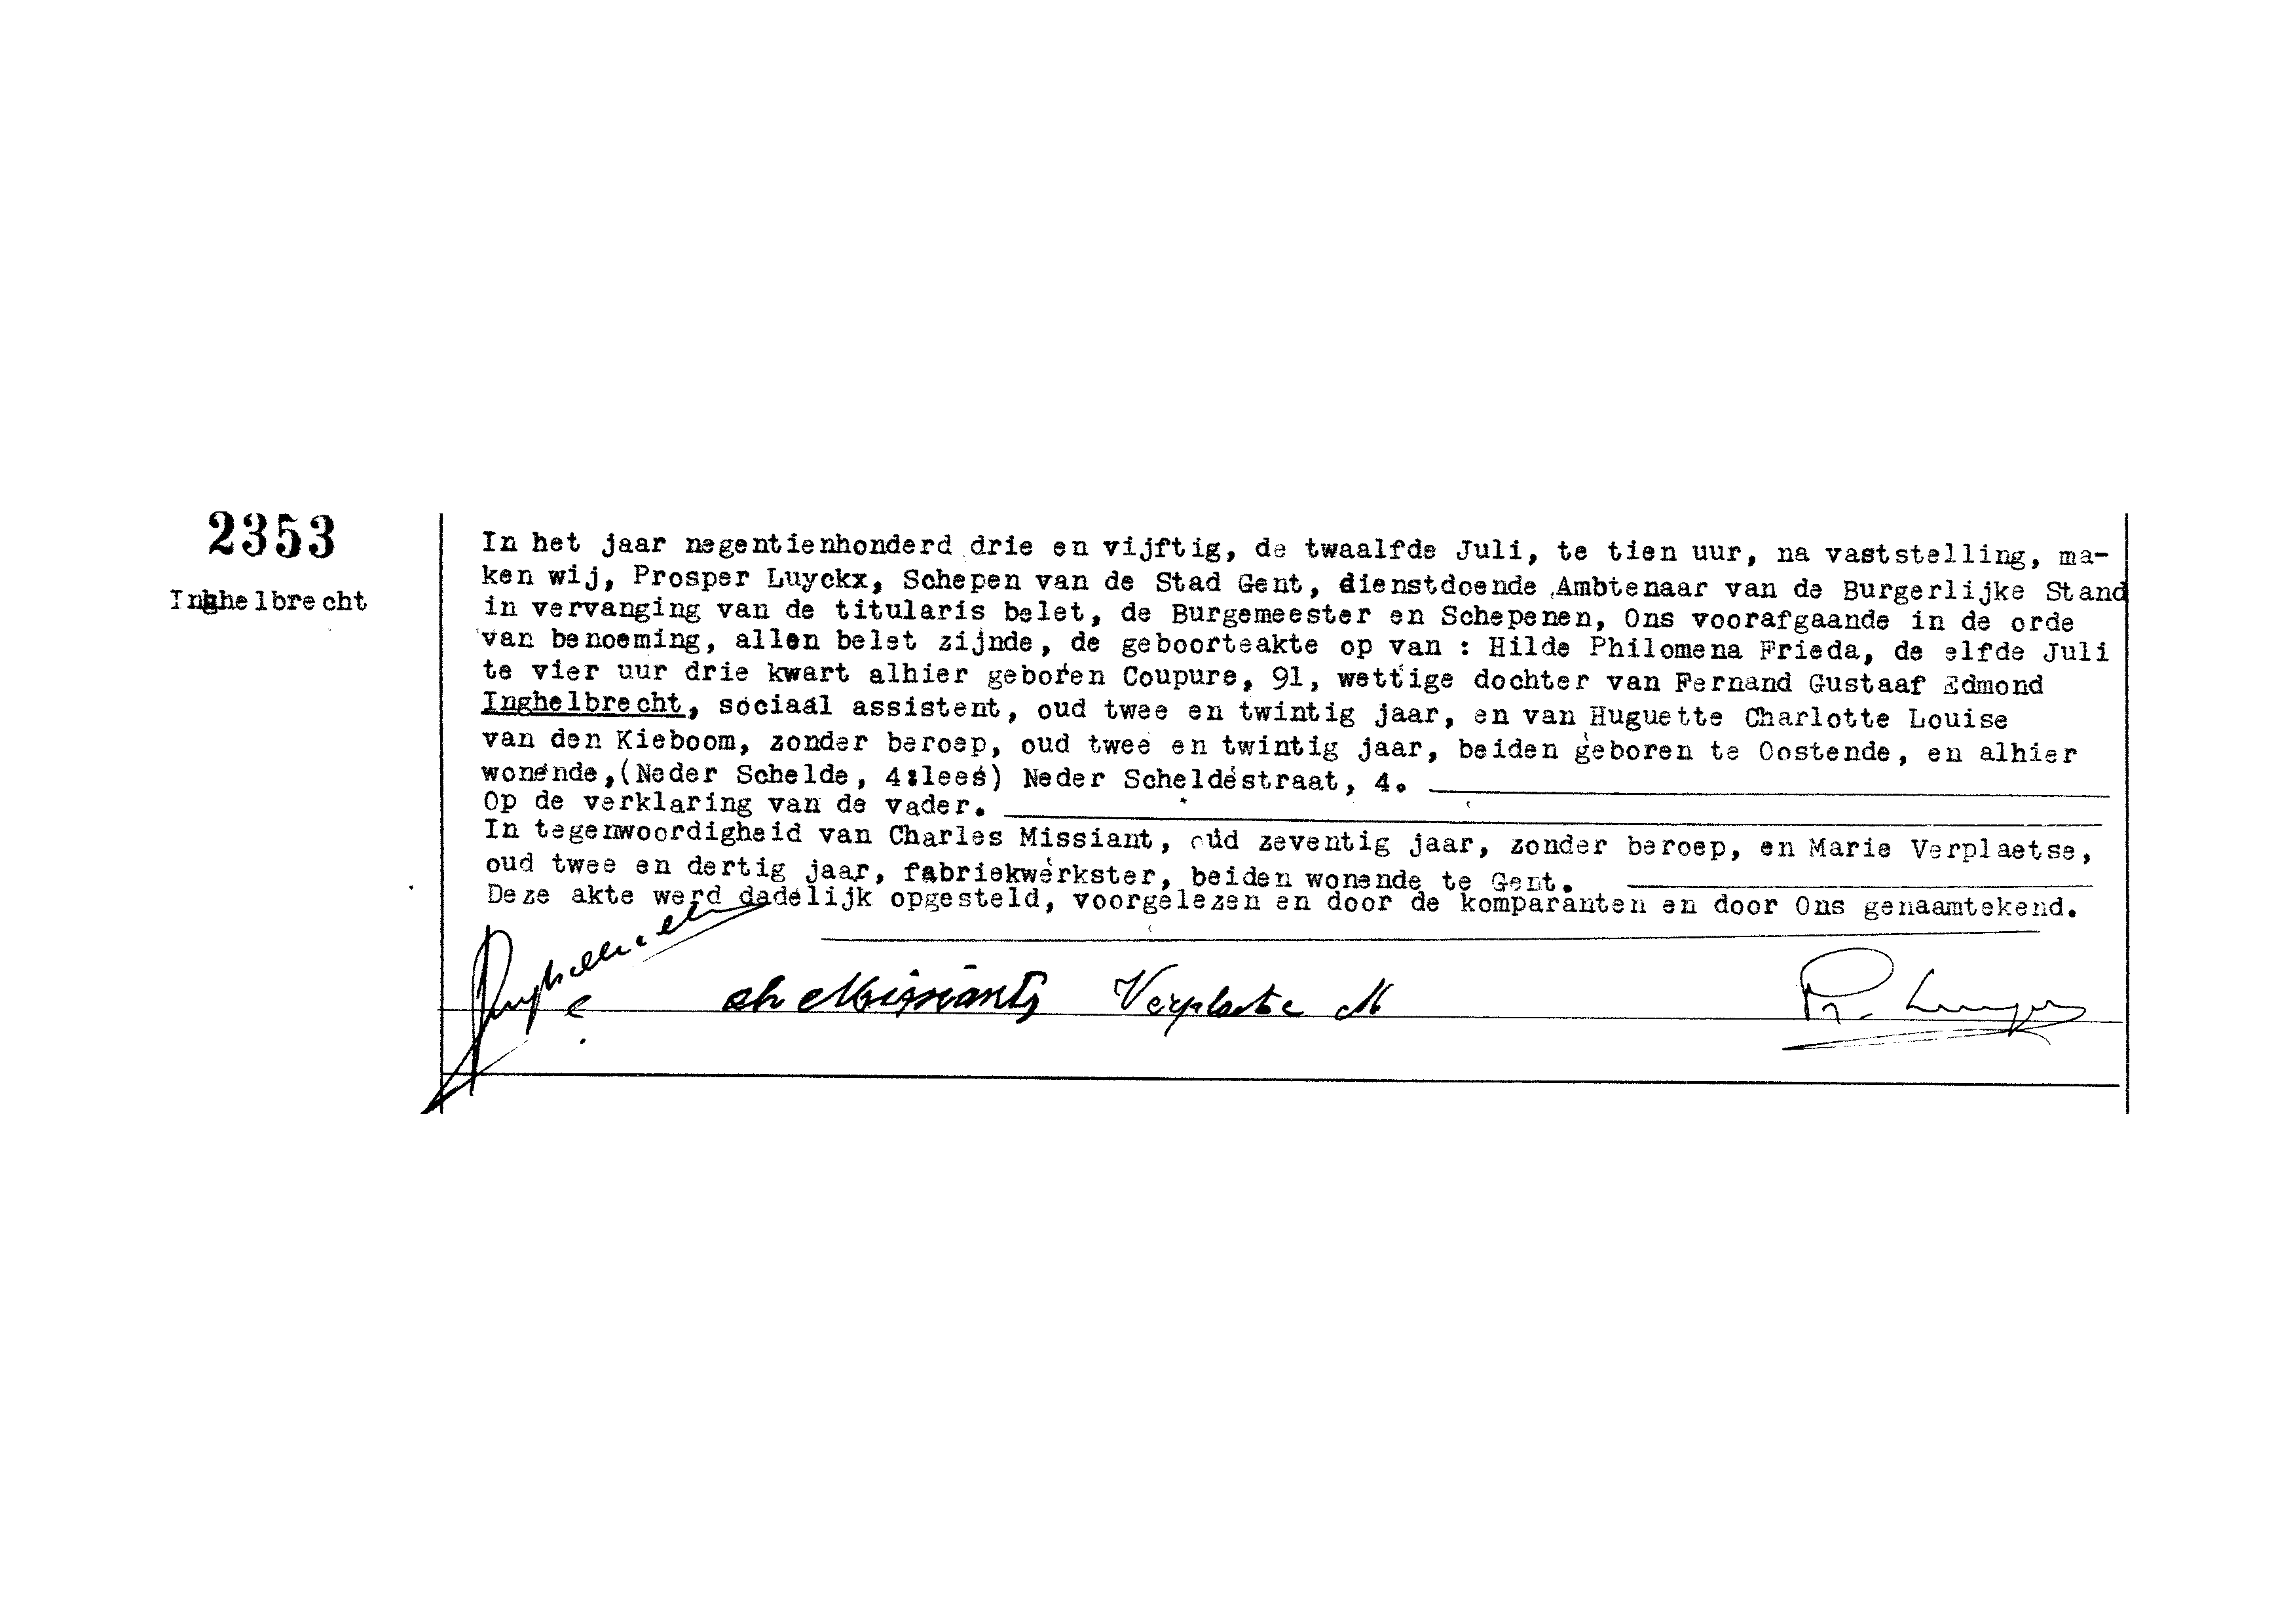 2353
Inghelbrecht
In het jaar negentienhonderd drie en vijftig, de twaalfde Juli, te tien uur, na vaststelling, ma-
ken wij, Prosper Luyckx, Schepen van de Stad Gent, dienstdoende Ambtenaar van de Burgerlijke Stand
in vervanging van de titularis belet, de Burgemeester en Schepenen, Ons voorafgaande in de orde
van benoeming, allen belet zijnde, de geboorteakte op van : Hilde Philomena Frieda, de elfde Juli
te vier uur drie kwart alhier geboren Coupure, 91, wettige dochter van Fernand Gustaaf Edmond
Inghelbrecht, sociaal assistent, oud twee en twintig jaar, en van Huguette Charlotte Louise
van den Kieboom, zonder beroep, oud twee en twintig jaar, beiden geboren te Oostende, en alhier
wonende,(Neder Schelde, 4:lees) Neder Scheldestraat, 4.
Op de verklaring van de vader.
In tegenwoordigheid van Charles Missiant, oud zeventig jaar, zonder beroep, en Marie Verplaetse,
oud twee en dertig jaar, fabriekwerkster, beiden wonende te Gent.
Deze akte werd dadelijk opgesteld, voorgelezen en door de komparanten en door Ons genaamtekend.
Verplaetse M